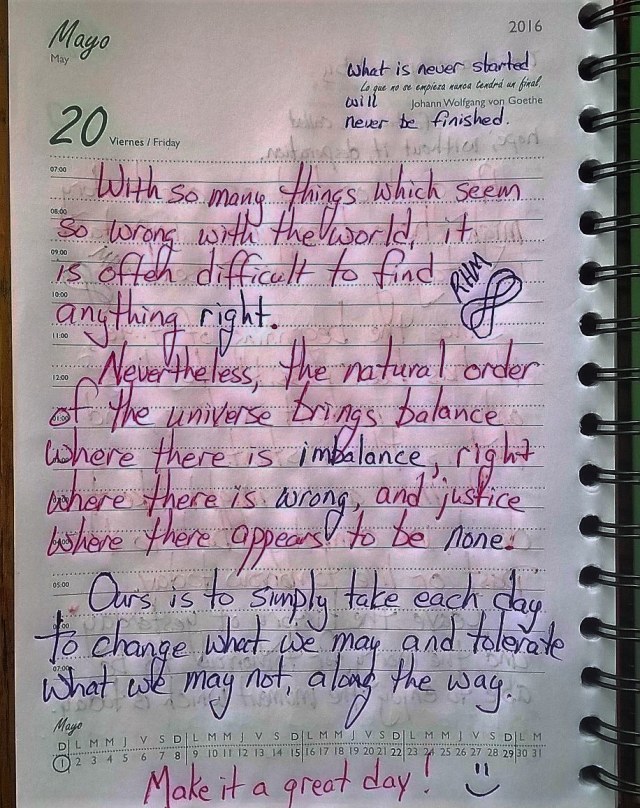 Mayo
May
2016
What is never started
Lo que no se empieza nunca tendrá un final.
will
Johann Wolfgang von Goethe
never be finished.
20 Viernes / Friday
07:00
With so many things which seem
08:00
so wrong with the world, it
09:00
is often difficult to find
RHM
10:00
anything right.
11:00
Nevertheless, the natural order
12:00
of the universe brings balance
where there is imbalance, right
where there is wrong, and justice
where there appears to be none.
05:00
Ours is to simply take each day
to change what we may and tolerate
07:00
what we may not, along the way.
Mayo
D L M M J V S D L M M J V S D L M M J V S D L M M J V S D L M
1 2 3 4 5 6 7 8 9 10 11 12 13 14 15 16 17 18 19 20 21 22 23 24 25 26 27 28 29 30 31
Make it a great day!